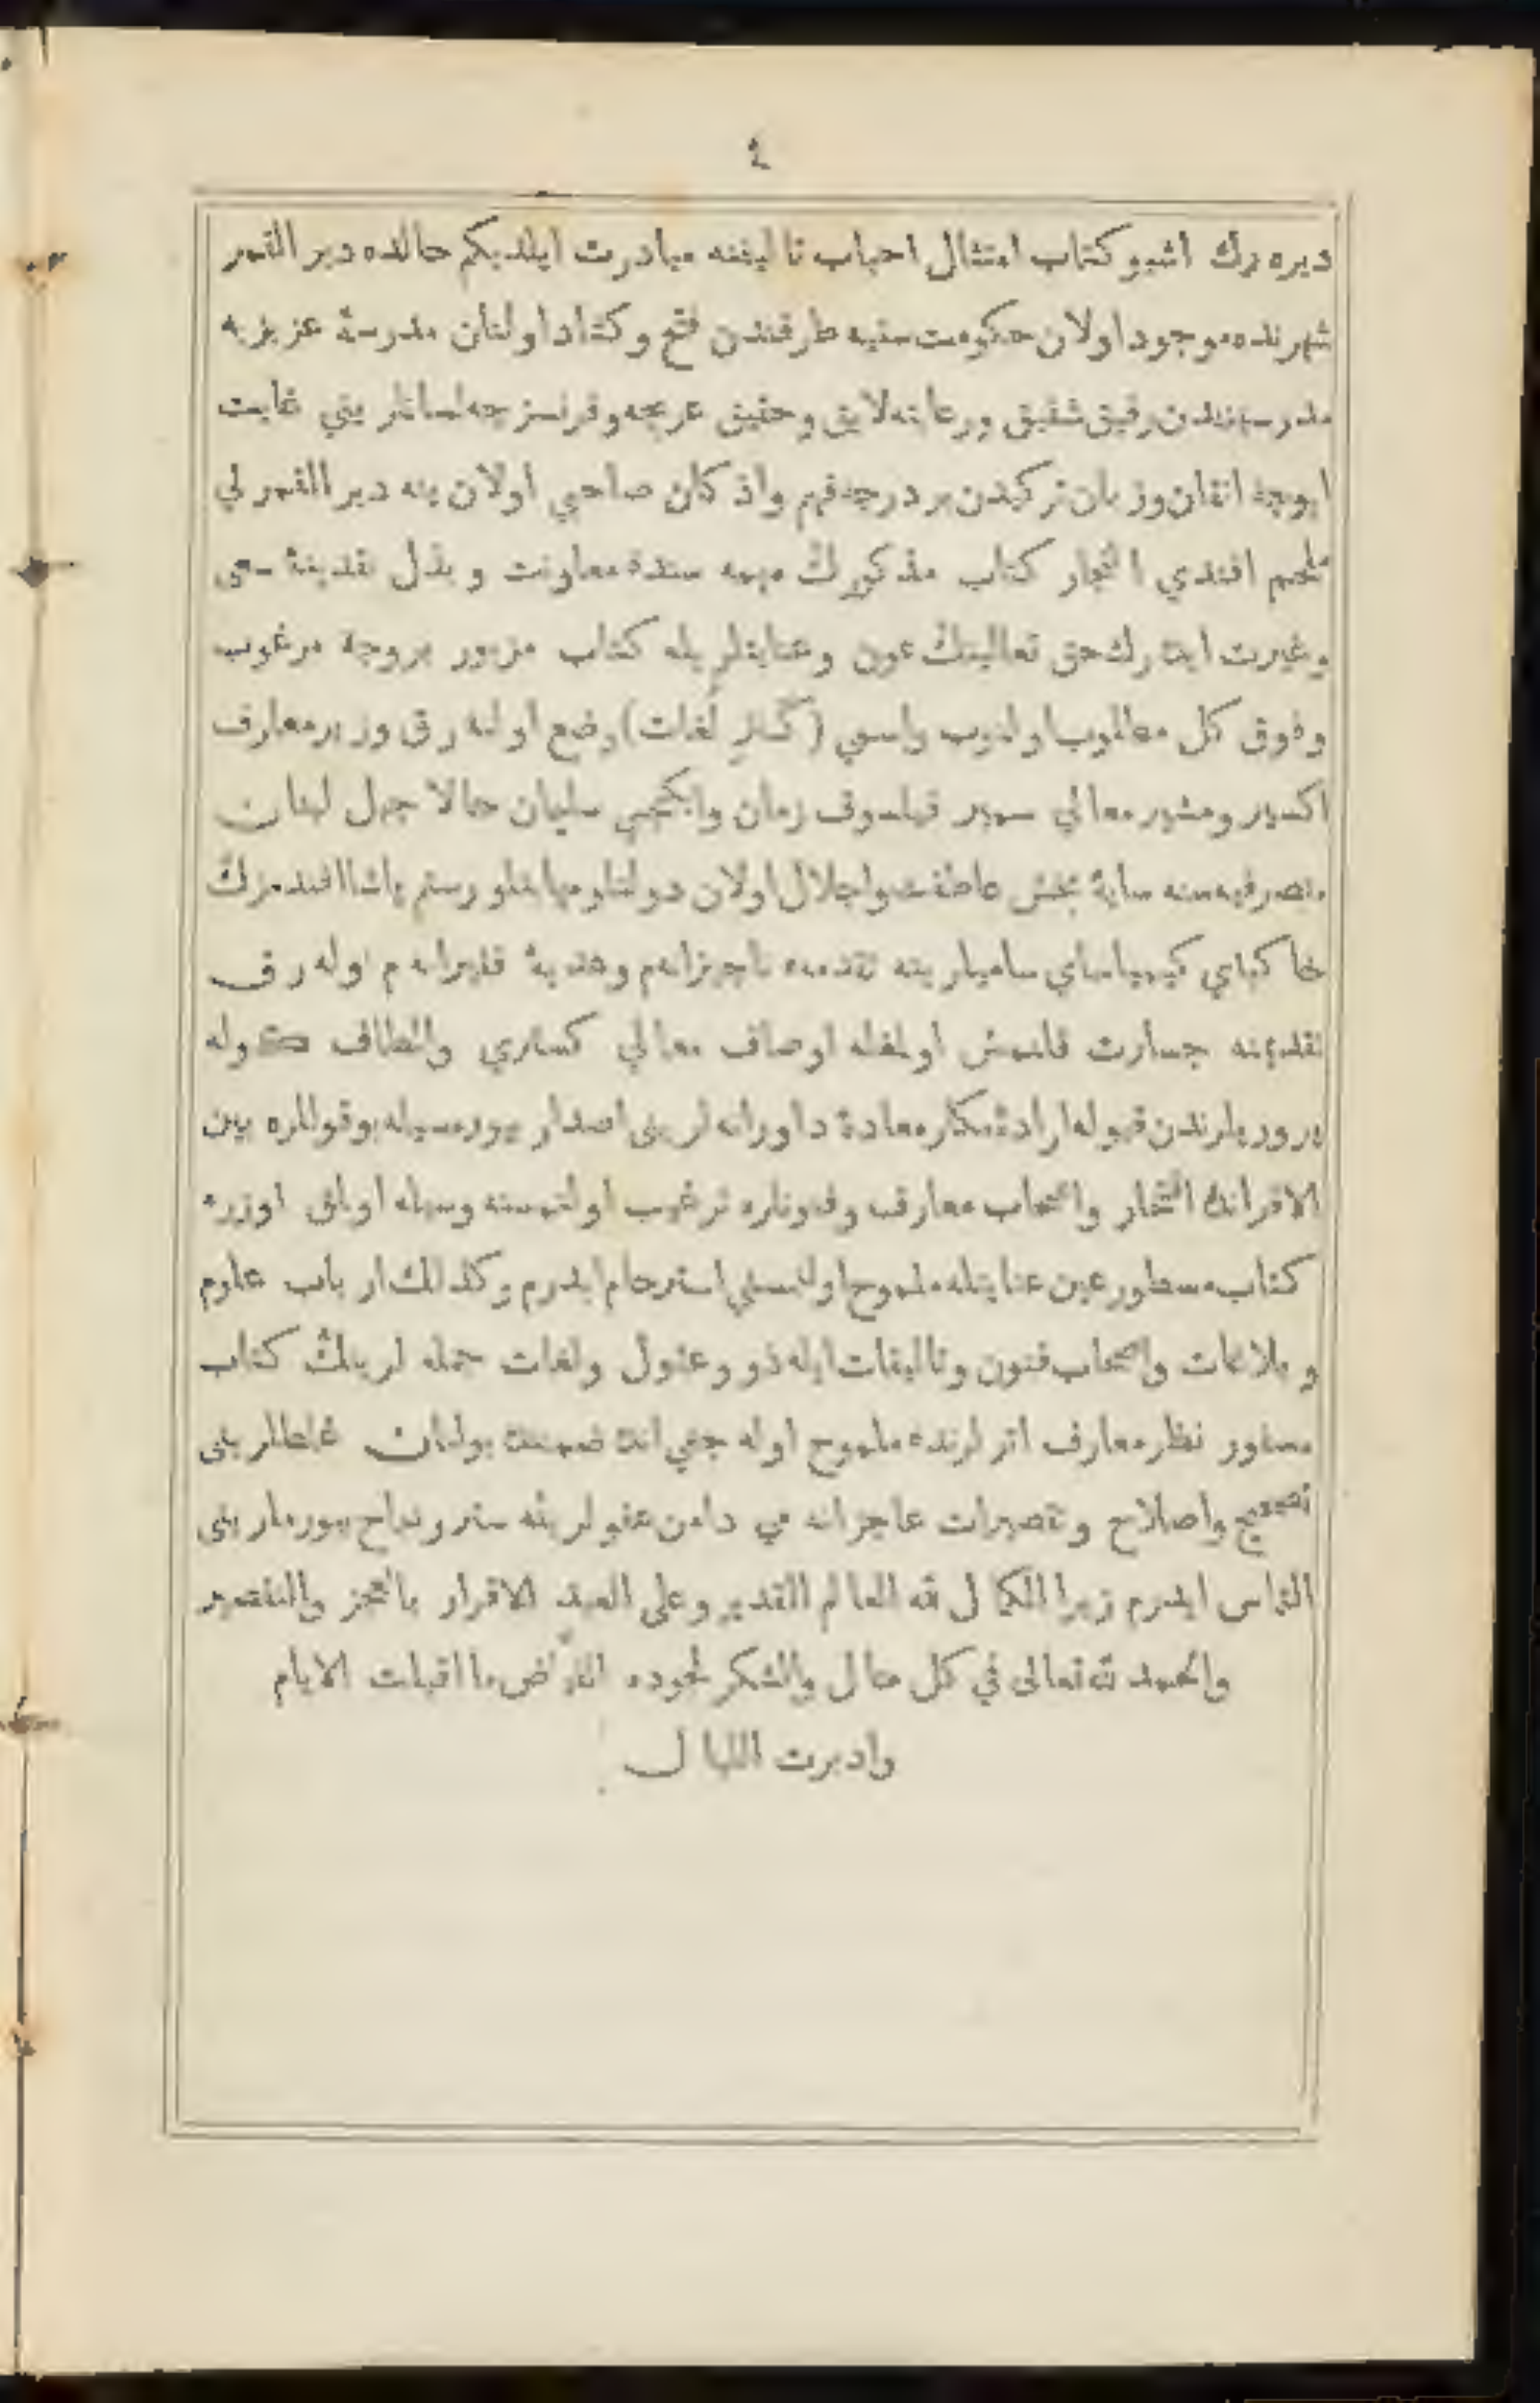 ٤
ديره رك اشبو كتاب امتثال احباب تاليفنه مبادرت ايلديكم حالده دير القمر
شهرنده موجود اولان حكومت سنيه طرفندن فتح وكشاد اولنان مدرسهٔ عزيزيه
مدرسيندن رفيق شفيق ورعايته لايق وحقيق عربجه وفرنسزجه لسانلريني غايت
ايوجه اتقان وزبان تركيدن بر درجه فهم واذكان صاحبي اولان ينه دير القمرلي
ملحم افندي النجار كتاب مذكورك مهمه سنده معاونت وبذل نقدينهٔ سعى
وغيرت ايده رك حق تعالينك عون وعنايتلريله كتاب مزبور بروجه مرغوب
وفوق كل مطلوب اولنوب واسمي (كنز لغات) وضع اوله رق وزير معارف
اكسير ومشير معالي سمير فيلسوف زمان وايكنجي سليمان حالا جبل لبنان
متصرفيه سنه سايهٔ بخش عاطفت واجلال اولان دولتلو مهابتلو رستم پاشا افندمزك
خاكپاي كيمياساي ساميلرينه تقدمهء ناچيزانهم وهديهٔ فقيرانه م اوله رق
تقديمنه جسارت قلنمش اولمغله اوصاف معالي كستري والطاف كوله
پرورپلرندن قبوله ارادهٔ مكارمعادهٔ داورانه لرينى اصدار بيورمسيله بوقوللره بين
الاقرانك افتخار واصحاب معارف وفنونلره ترغيب اولنمسنه وسيله اولمق اوزره
كتاب مسطور عين عنايتله ملموح اولنمسني استرحام ايدرم وكذلك ارباب علوم
وبلاغات واصحاب فنون وتاليفات ايله ذو وعقول ولغات جمله لرينك كتاب
مسفور نظر معارف اثرلرنده ملموح اوله جغي انده ضمننده بولنان غلطلرينى
تصحيح واصلاح وتقصيرات عاجزانه مي دامن عفولرينه ستر ونداح بيورملرينى
التماس ايدرم زيرا الكمال لله العالم القدير وعلى العبد الاقرار بالعجز والتقصير
والحمد لله تعالى في كل حال والشكر لجوده الفيّاض ما اقبلت الايام
وادبرت الليال